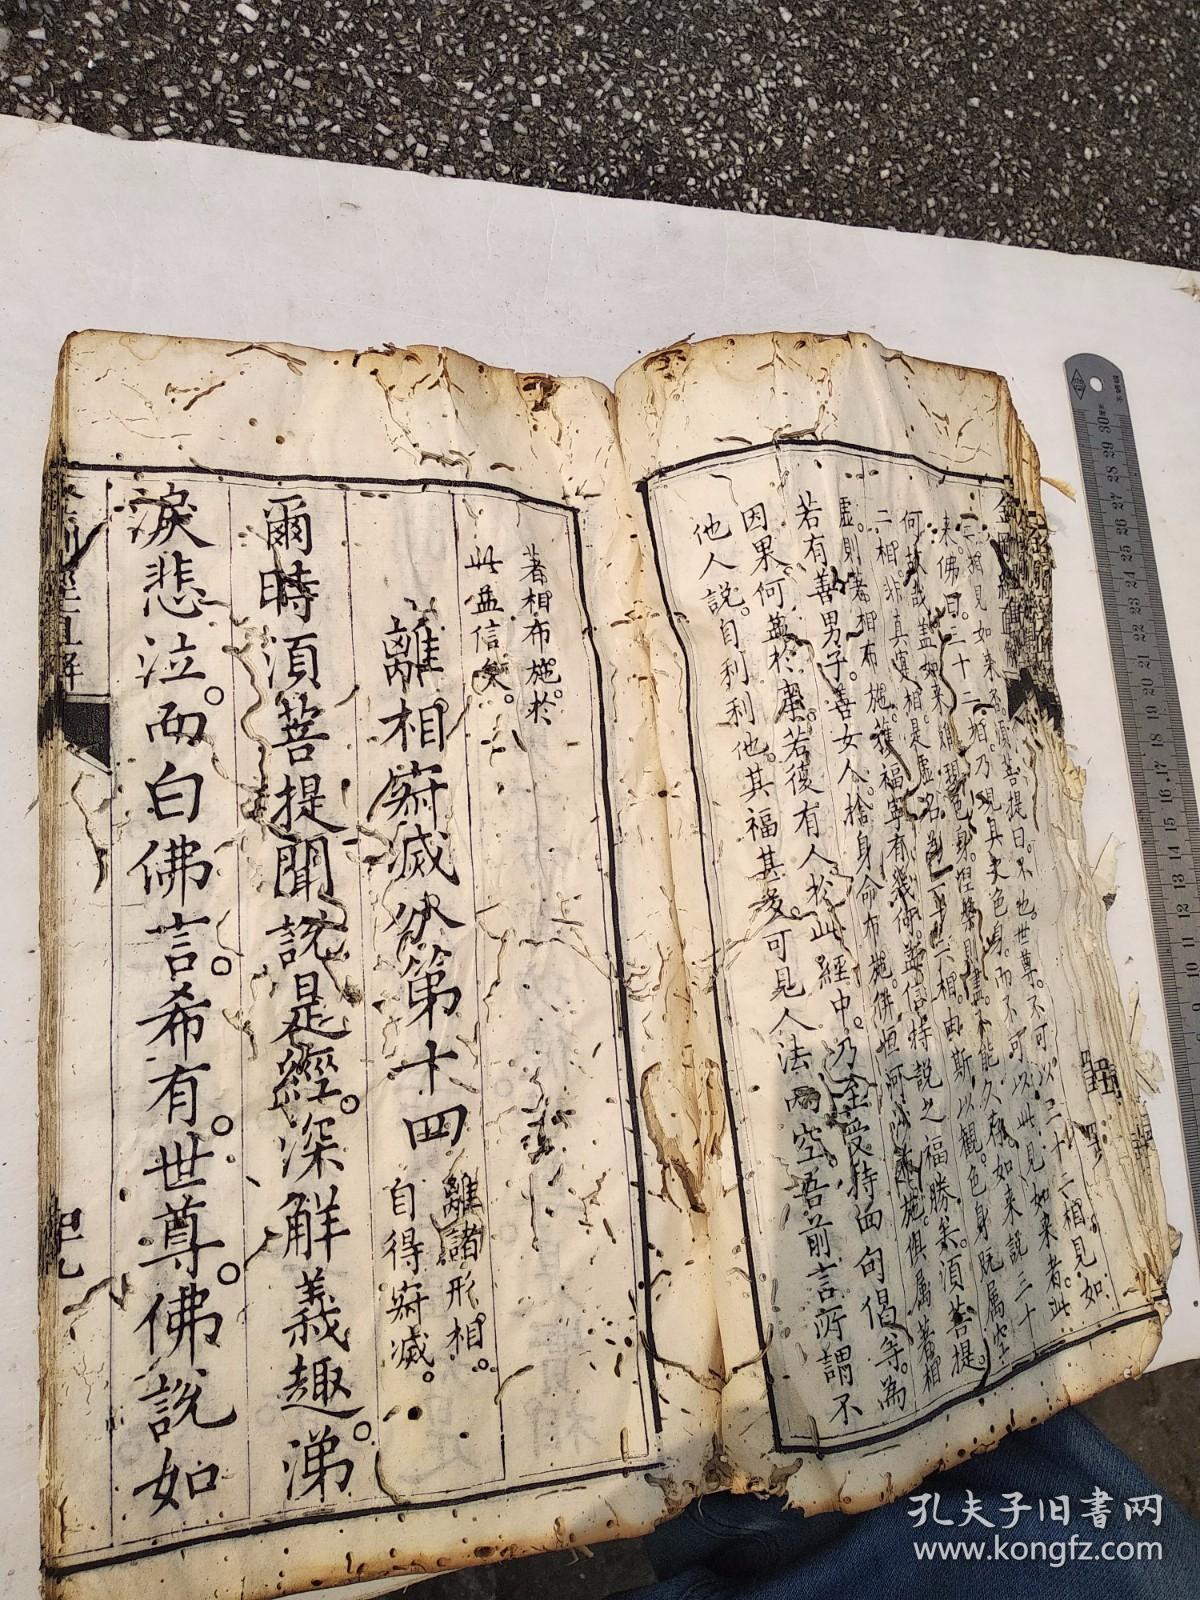 三相見如來不須菩提曰不也世尊不可以三十二相見如
來佛曰三十二相乃現具丈色身而不可以此見如來者此
何故哉蓋如來雖現色身涅槃則盡不能久存如來說三十
二相非真實相是虛名為三十二相由斯以觀色身既屬空
虛則著相布施獲福寧有幾何益信持說之福勝矣須菩提
若有善男子善女人捨身命布施俱恒河沙布施俱属著相
因果何益於
若復有人於此經中乃至受持四句偈等為
他人說自利利他其福甚多可見人法兩空吾前言所謂不
著相布施於
此益信矣
離相寂滅分第十四
離諸形相
自得寂滅
爾時須菩提聞說是經深解義趣涕
淚悲泣而白佛言希有世尊佛說如
孔夫子旧書网
www.kongfz.com